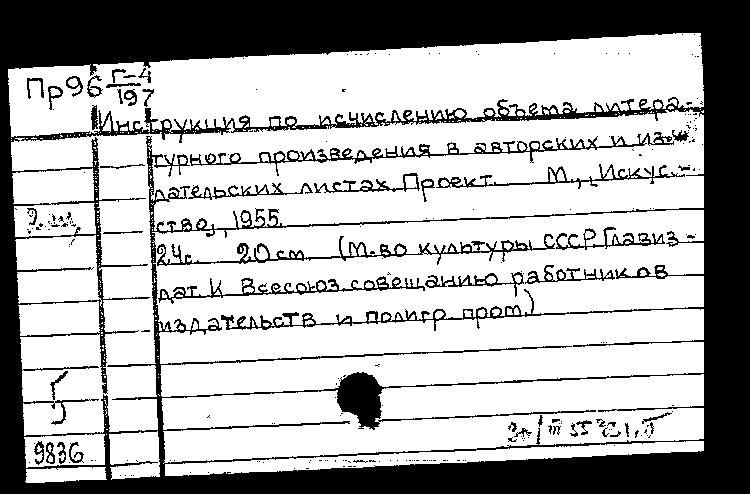 Пр96 Г-4
197
Инструкция по исчислению объема литера-
турного произведения в авторских и из-
дательских листах. Проект. М., "Искус-
ство", 1955.
24с. 20см. (М-во культуры СССР. Главиз-
дат. К Всесоюз. совещанию работников
издательств и полигр. пром.)
5
9836